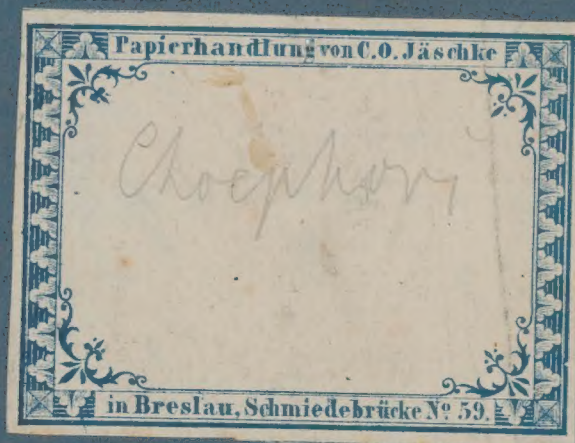 Papierhandlung von C. O. Jäschke
Choephori
in Breslau, Schmiedebrücke Nº 59.